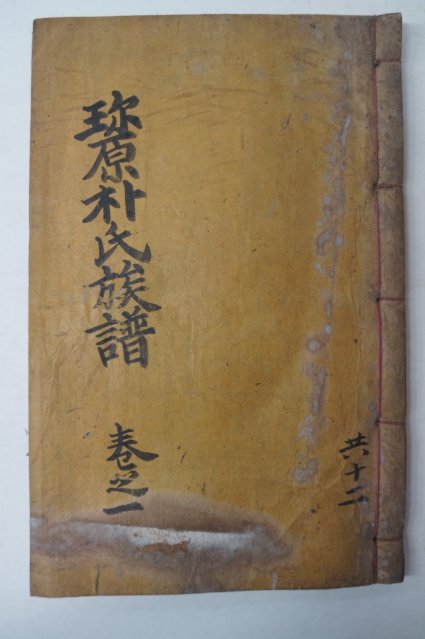 珎原朴氏族譜 卷之一
共十二